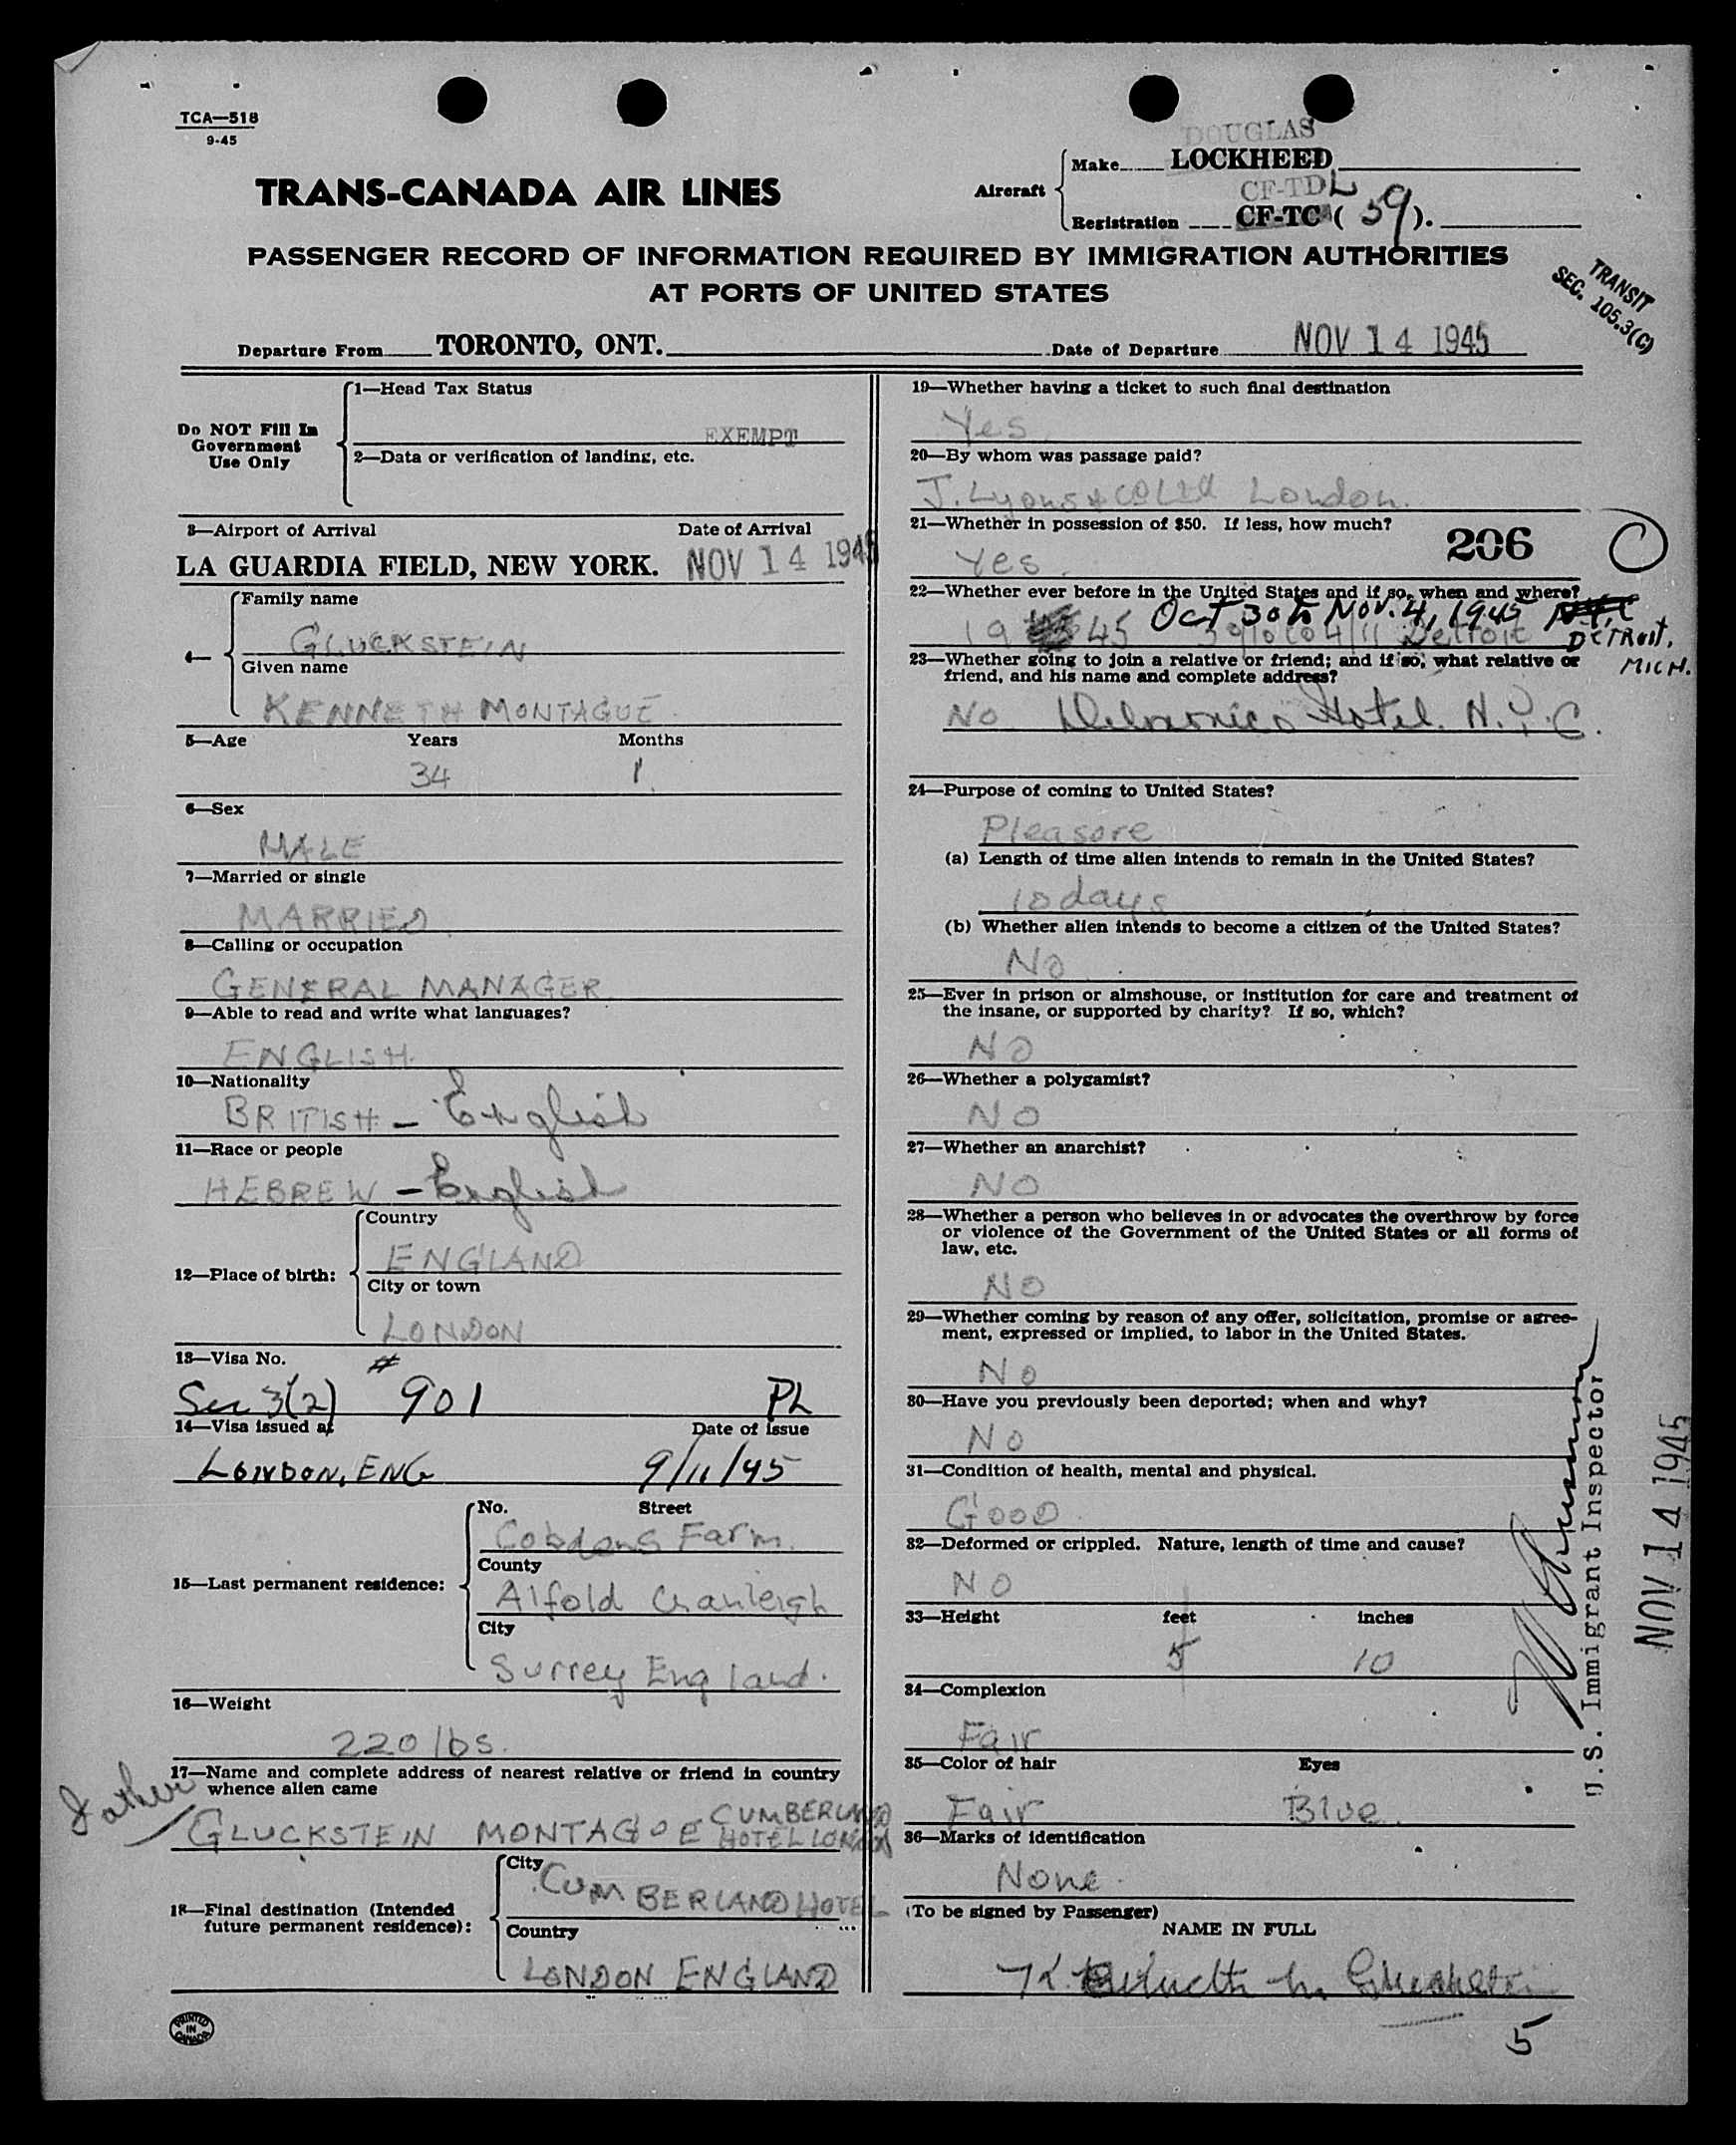 TCA—518
9-45
TRANS-CANADA AIR LINES
DOUGLAS
Aircraft
Make LOCKHEED
CF-TDL
Registration CF-TC ( 59 ).
PASSENGER RECORD OF INFORMATION REQUIRED BY IMMIGRATION AUTHORITIES
AT PORTS OF UNITED STATES
TRANSIT
SEC. 105.3(C)
Departure From TORONTO, ONT. Date of Departure NOV 14 1945
Do NOT Fill In
Government
Use Only
1—Head Tax Status
EXEMPT
2—Data or verification of landing, etc.
3—Airport of Arrival Date of Arrival
LA GUARDIA FIELD, NEW YORK. NOV 14 1945
4—
Family name
GLUCKSTEIN
Given name
KENNETH MONTAGUE
5—Age Years Months
34 1
6—Sex
MALE
7—Married or single
MARRIED
8—Calling or occupation
GENERAL MANAGER
9—Able to read and write what languages?
ENGLISH
10—Nationality
BRITISH - English
11—Race or people
HEBREW - English
12—Place of birth:
Country
ENGLAND
City or town
LONDON
13—Visa No.
Sec 3(2) # 901 PL
14—Visa issued at Date of issue
LONDON, ENG 9/11/45
15—Last permanent residence:
No. Street
Cobdens Farm
County
Alfold Cranleigh
City
Surrey England.
16—Weight
220 lbs.
17—Name and complete address of nearest relative or friend in country
whence alien came
Father
GLUCKSTEIN MONTAGUE CUMBERLAND
HOTEL LONDON
18—Final destination (Intended
future permanent residence):
City
CUMBERLAND HOTEL
Country
LONDON ENGLAND
PRINTED
IN
CANADA
19—Whether having a ticket to such final destination
Yes
20—By whom was passage paid?
J. Lyons & Co Ltd London.
21—Whether in possession of $50. If less, how much?
Yes. 206 C
22—Whether ever before in the United States and if so, when and where?
Oct 30 to Nov. 4, 1945
DETROIT,
MICH.
19 45 30/10 to 4/11 Detroit
23—Whether going to join a relative or friend; and if so, what relative or
friend, and his name and complete address?
No Delmonico Hotel. N.Y.C.
24—Purpose of coming to United States?
Pleasore
(a) Length of time alien intends to remain in the United States?
10 days
(b) Whether alien intends to become a citizen of the United States?
No
25—Ever in prison or almshouse, or institution for care and treatment of
the insane, or supported by charity? If so, which?
NO
26—Whether a polygamist?
NO
27—Whether an anarchist?
NO
28—Whether a person who believes in or advocates the overthrow by force
or violence of the Government of the United States or all forms of
law, etc.
NO
29—Whether coming by reason of any offer, solicitation, promise or agree-
ment, expressed or implied, to labor in the United States.
No
30—Have you previously been deported; when and why?
No
31—Condition of health, mental and physical.
GOOD
32—Deformed or crippled. Nature, length of time and cause?
NO
33—Height feet inches
5 10
34—Complexion
Fair
35—Color of hair Eyes
Fair Blue
36—Marks of identification
None.
(To be signed by Passenger)
NAME IN FULL
Gluckstein
5
U.S. Immigrant Inspector
NOV 14 1945